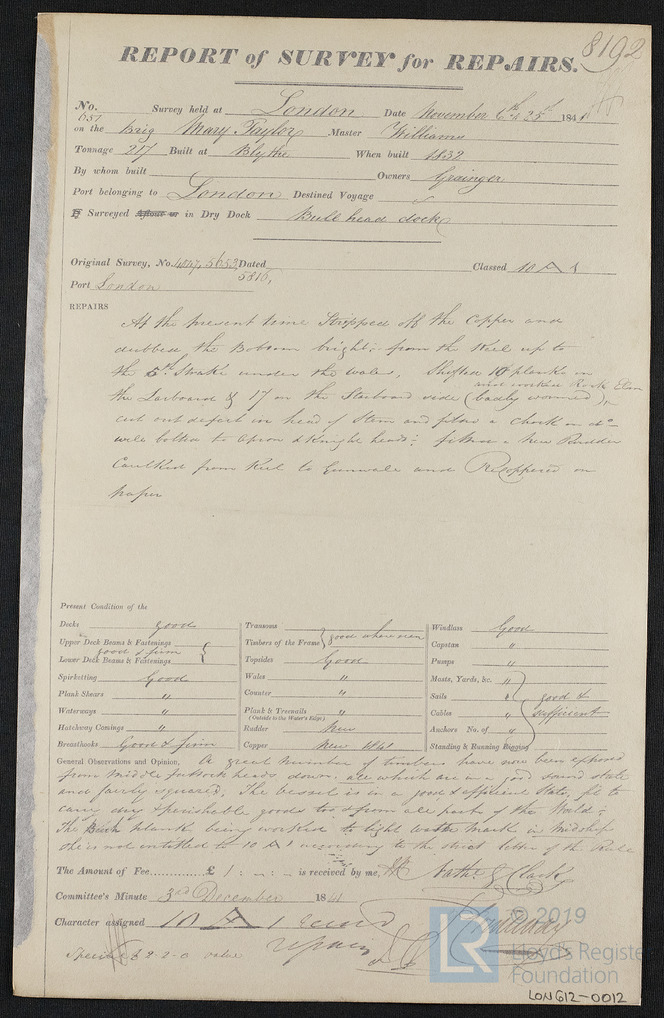 8192
REPORT of SURVEY for REPAIRS.
No. 657 Survey held at London Date November 6th & 25th 1841
on the Brig Mary Taylor Master Williams
Tonnage 217 Built at Blythe When built 1832
By whom built Owners Grainger
Port belonging to London Destined Voyage
If Surveyed Afloat or in Dry Dock Bull head dock
Original Survey, No. 5653, Dated Classed 10 A 1
5816,
Port London
REPAIRS
At the present time Stripped off the Copper and
dubbed the Bottom bright; from the Keel up to
the 5th Strake under the wales, Shifted 10 planks on
and worked Rock Elm
the Larboard & 17 on the Starboard side (badly wormed),
cut out defect in head of Stem and place a chock in do
well bolted to Apron & Knight heads; fitted a New Rudder
Caulked from Keel to Gunwale and Recoppered on
paper
Present Condition of the
Decks good
Upper Deck Beams & Fastenings
good & firm
Lower Deck Beams & Fastenings
Spirketting Good
Plank Shears "
Waterways "
Hatchway Comings "
Breasthooks Good & firm
Transoms
Timbers of the Frame good where seen
Topsides Good
Wales "
Counter "
Plank & Treenails "
(Outside to the Water's Edge)
Rudder New
Copper New 1841
Windlass Good
Capstan "
Pumps "
Masts, Yards, &c. "
Sails " good &
Cables " sufficient
Anchors No. of "
Standing & Running Rigging
General Observations and Opinion, A great number of timbers have now been exposed
from middle futtock heads down; all which are in a good sound state
and fairly squared; The vessel is in a good & efficient state, fit to
carry dry & perishable goods to & from all parts of the World;
The plank being worked to light water mark in Midships
she is not entitled to 10 A 1 according to the strict letter of the Rule
The Amount of Fee £ 1 : - : - is received by me, Nathl. G. Clark
Committee's Minute 3rd December 1841
Character assigned 10 A 1
repairs
Special £ 2-2-0
© 2019
LR
Lloyd's Register
Foundation
LON612-0012